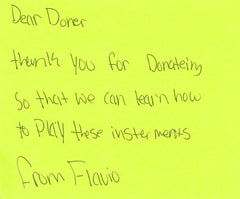 Dear Doner
thank you for Donateing
so that we can learn how
to Play these insterments
from Flavio